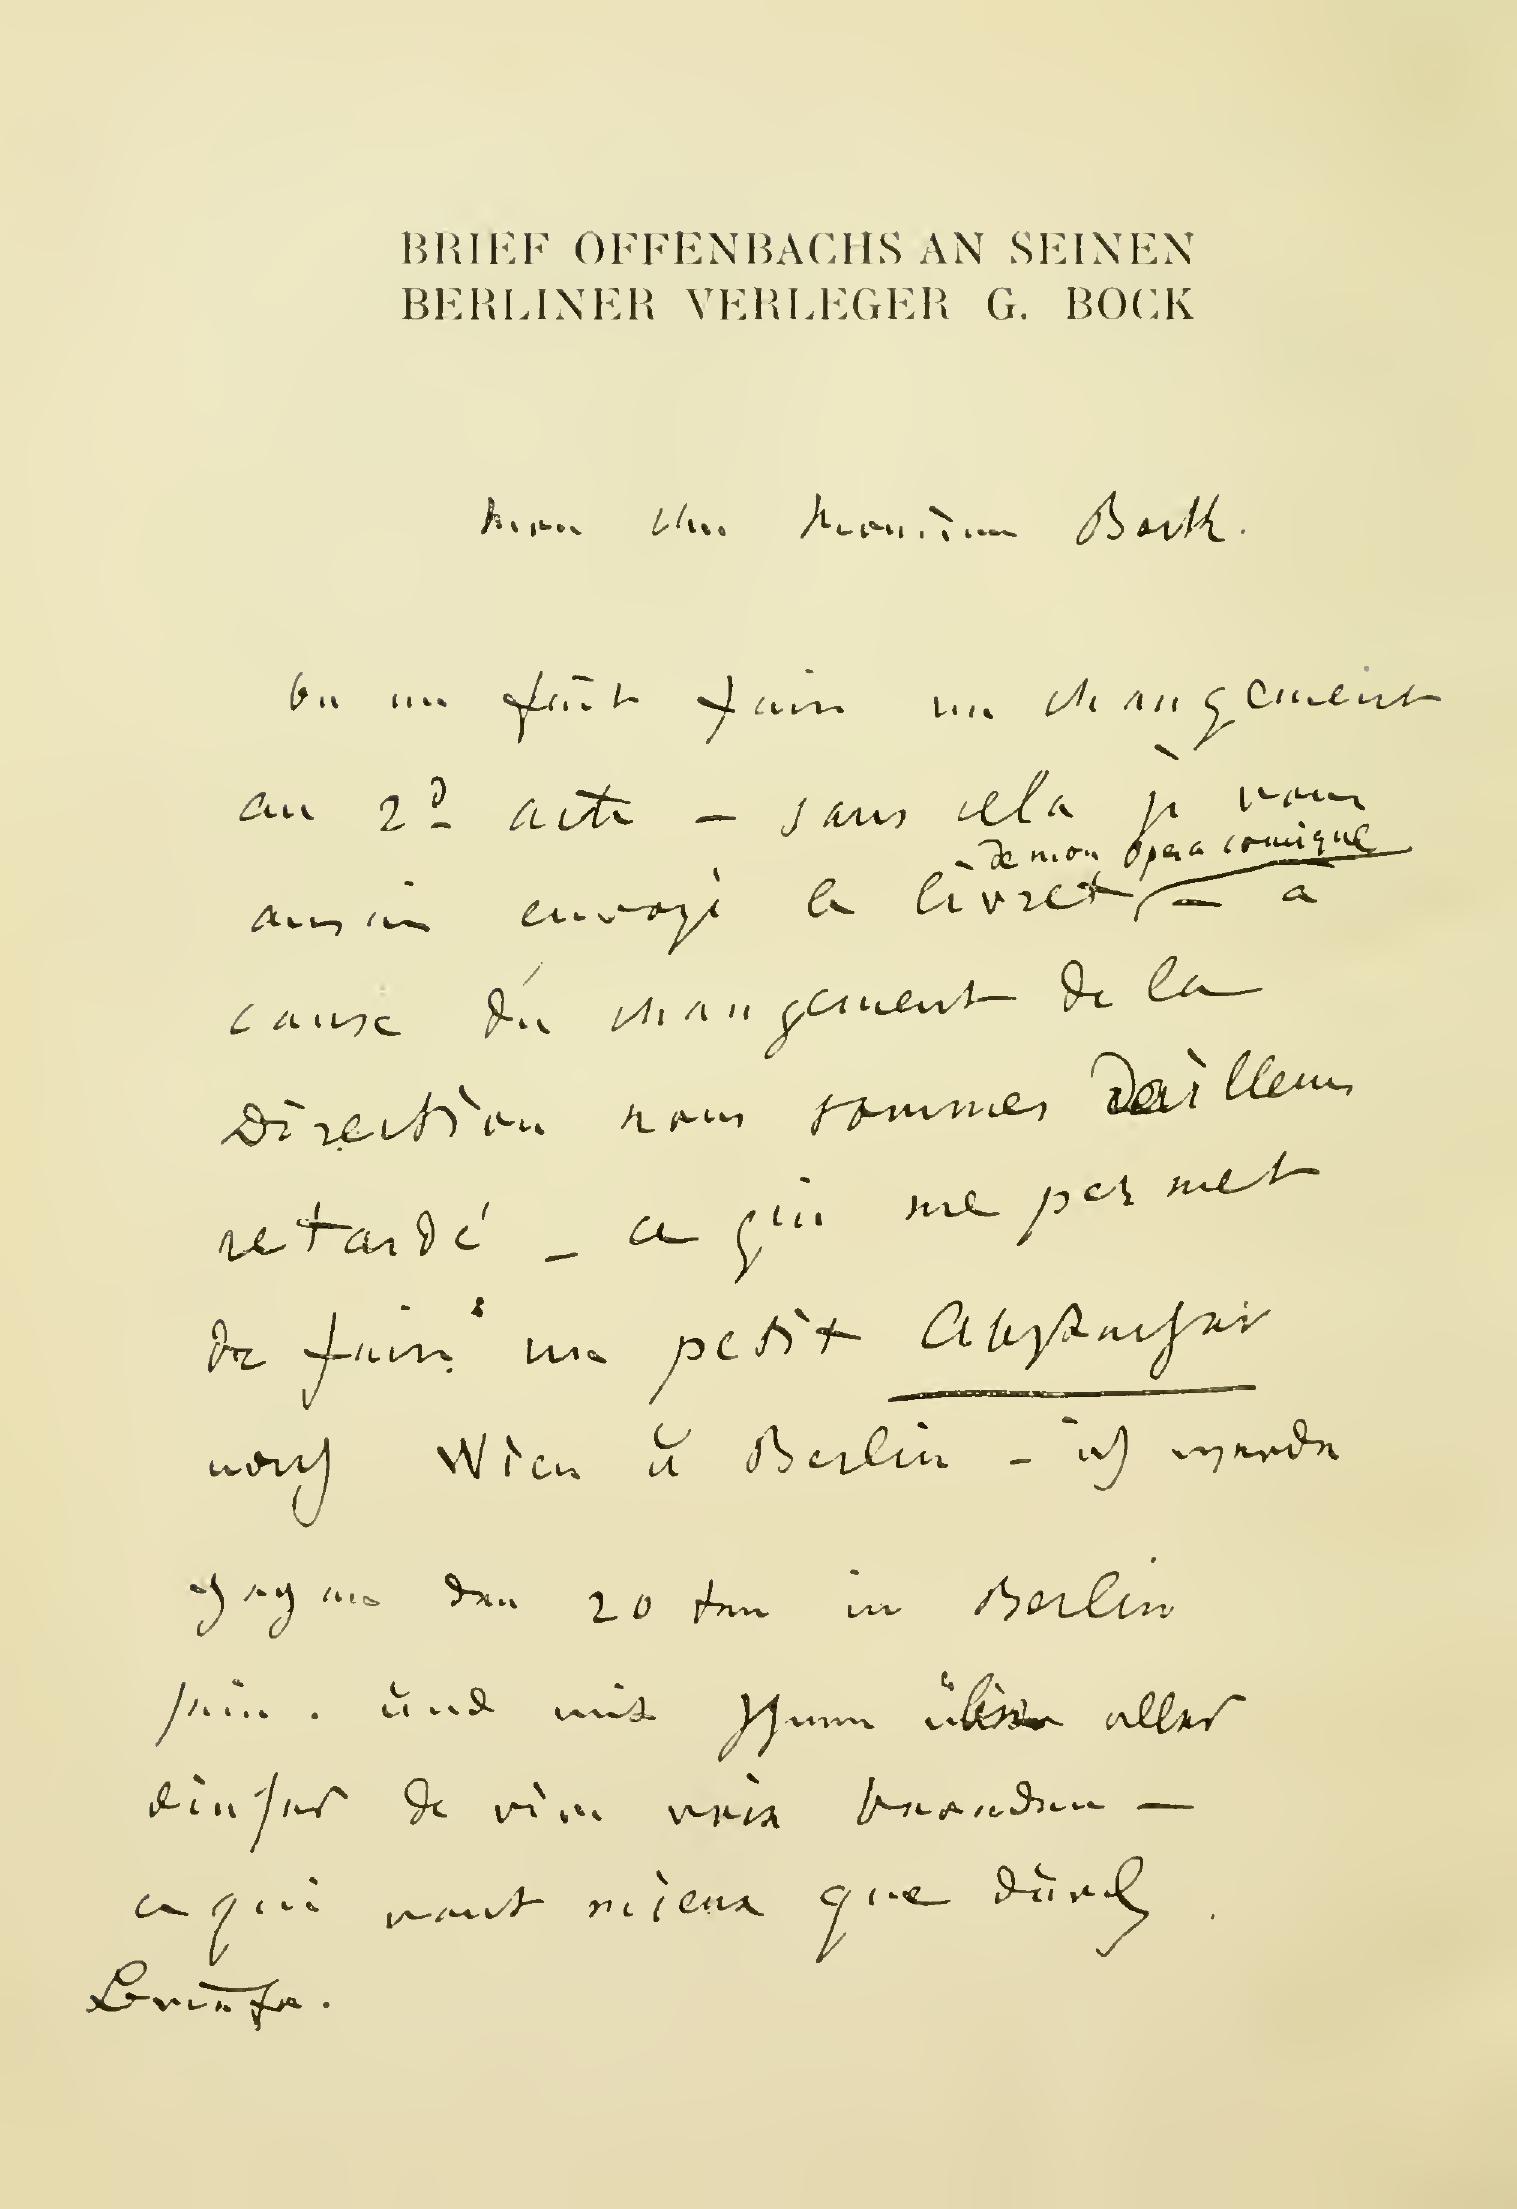 BRIEF OFFENBACHS AN SEINEN
BERLINER VERLEGER G. BOCK
Mon cher Monsieur Bock.
On me fait faire un changement
au 2d acte – sans cela je vous
de mon opera comique
aurais envoyé le livret – à
cause du changement de la
Direction nous sommes dailleurs
retardé – ce qui me permet
de faire un petit Abstecher
nach Wien u Berlin – ich werde
gegen den 20 ten in Berlin
sein. und mit Ihnen über alles
dieses de vive voix
ce qui vaut mieux que durch
Briefe.